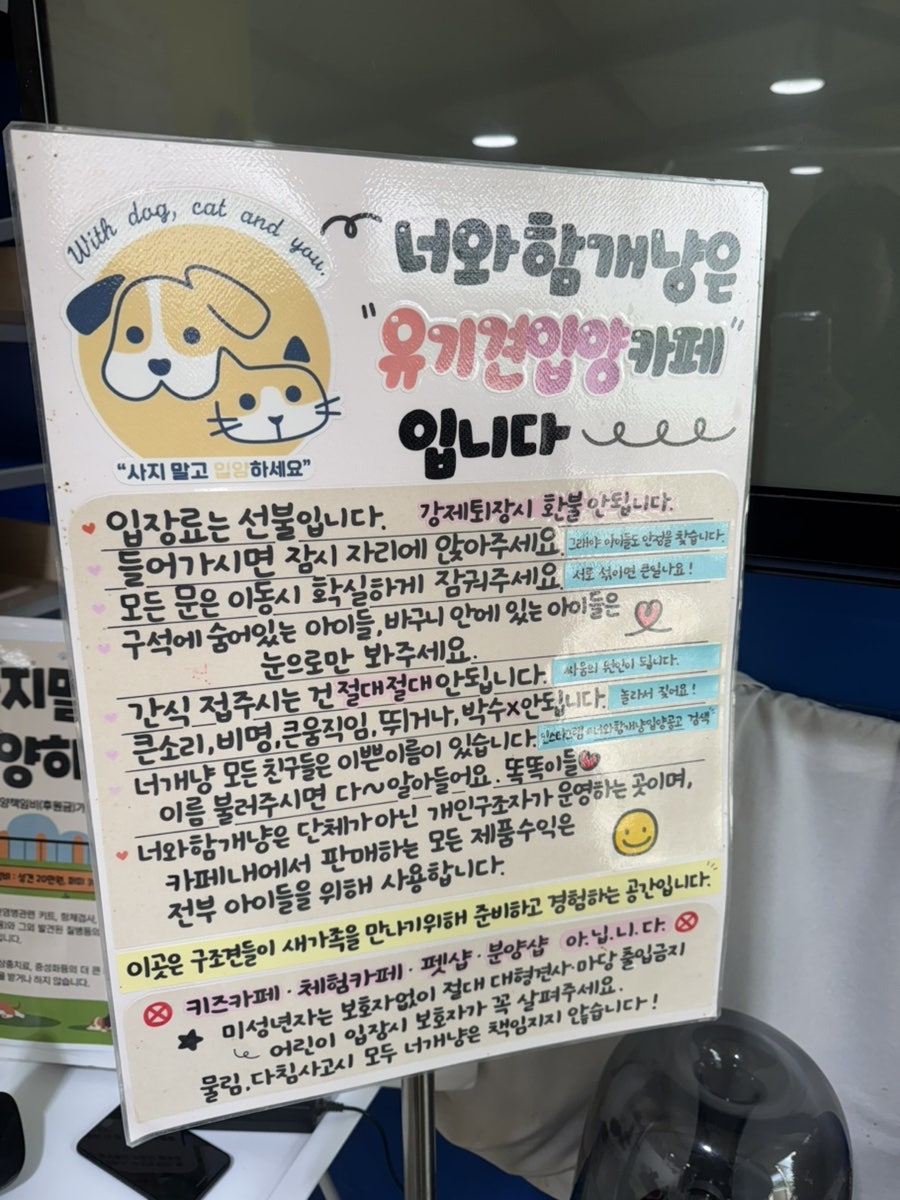 With dog, cat and you.
너와함개냥은
"유기견입양카페"
입니다
"사지 말고 입양하세요"
입장료는 선불입니다. 강제퇴장시 환불안됩니다.
들어가시면 잠시 자리에 앉아주세요. 그래야 아이들도 안정을 찾습니다.
모든 문은 이동시 확실하게 잠궈주세요. 서로 섞이면 큰일나요!
구석에 숨어있는 아이들, 바구니 안에 있는 아이들은
눈으로만 봐주세요.
간식 접주시는 건 절대절대안됩니다. 싸움의 원인이 됩니다.
큰소리, 비명, 큰움직임, 뛰거나, 박수x안됩니다. 놀라서 짖어요!
너개냥 모든 친구들은 이쁜이름이 있습니다. 인스타그램 #너와함개냥입양공고 검색
이름 불러주시면 다~알아들어요. 똑똑이들
너와함개냥은 단체가아닌 개인구조자가 운영하는 곳이며,
카페내에서 판매하는 모든 제품수익은
전부 아이들을 위해 사용합니다.
이곳은 구조견들이 새가족을 만나기위해 준비하고 경험하는 공간입니다.
키즈카페·체험카페·펫샵·분양샵 아.닙.니.다.
미성년자는 보호자없이 절대 대형견사·마당 출입금지
어린이 입장시 보호자가 꼭 살펴주세요.
물림, 다침사고시 모두 너개냥은 책임지지 않습니다!
지말
양하
양책임비(후원금)가
비 : 성견 20만원,
염병관련 키트, 항체검사,
)와 그외 발견된 질병등의
니다.
상충치료, 중성화등의 더 큰
을 받거나 하지 않습니다.